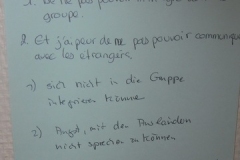 1. De ne pas pouvoir
groupe.
2. Et j'ai peur de ne pas pouvoir communiquer
avec les étrangers
1) sich nicht in die Gruppe
integrieren könne
2) Angst, mit den Ausländern
nicht sprechen zu können